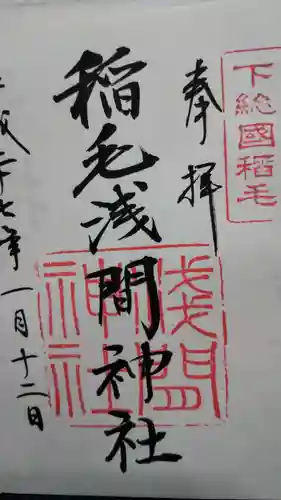 下総國稲毛
奉拝
稲毛浅間神社
浅間
神社
平成二十七年一月十二日